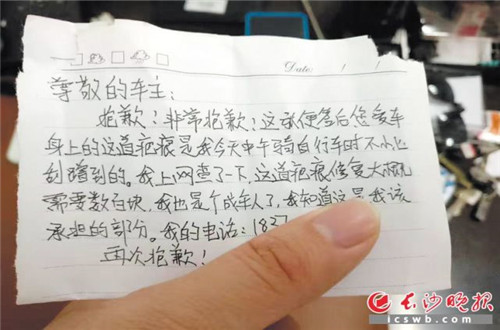 Date: / /
尊敬的车主：
抱歉！非常抱歉！这张便签后您爱车
身上的这道疤痕是我今天中午骑自行车时不小心
刮蹭到的。我上网查了一下，这道疤痕修复大概
需要数百块，我也是个成年人了，我知道这是我该
承担的部分。我的电话：1827
再次抱歉！
长沙晚报
icswb.com